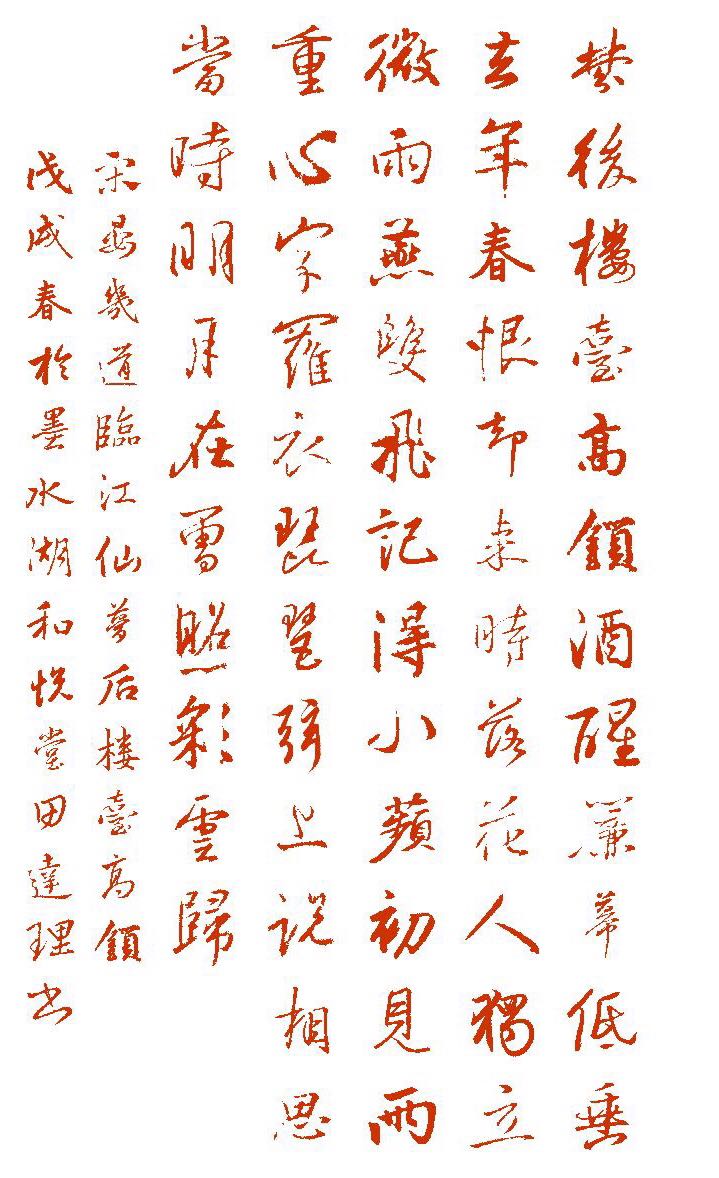 梦後樓臺高鎖酒醒簾幕低垂
去年春恨却來時落花人獨立
微雨燕雙飛記得小蘋初見兩
重心字羅衣琵琶弦上説相思
當時明月在曾照彩雲歸
宋晏幾道臨江仙夢后樓臺高鎖
戊戌春於墨水湖和悦堂田達理书